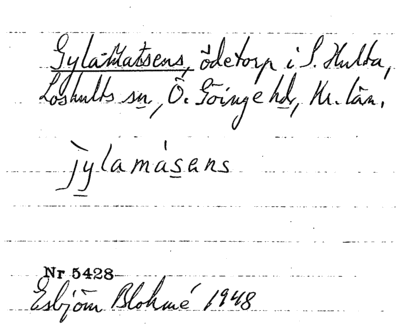 Gyla-Matsens, ödetorp i S. Hulta,
Loshults sn, Ö. Göinge hd, Kr. län.
jylamásens
Nr 5428
Esbjörn Blohmé 1948